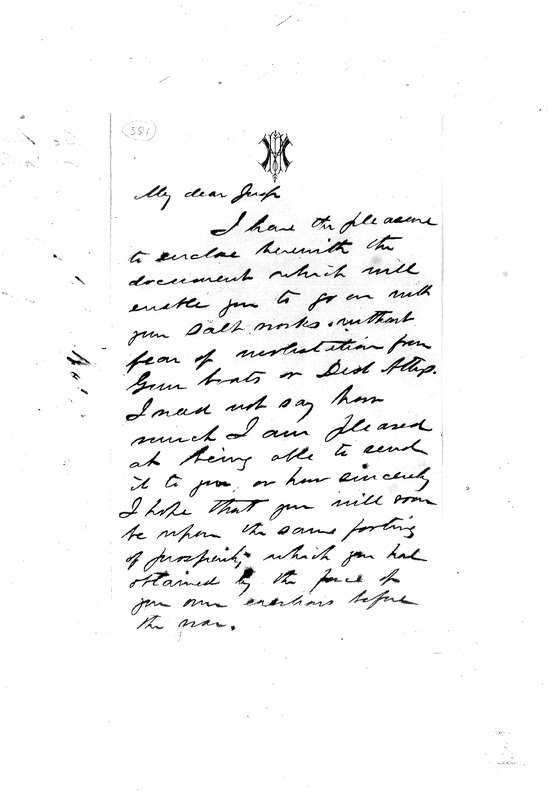 381
My dear Jusp
I have the pleasure
to enclose herewith the
document which will
enable you to go on with
your salt works without
fear of molestation from
Gun boats or Dist Attys.
I need not say how
much I am pleased
at being able to send
it to you, or how sincerely
I hope that you will soon
be upon the same footing
of prosperity which you had
obtained by the force of
your own exertions before
the war.